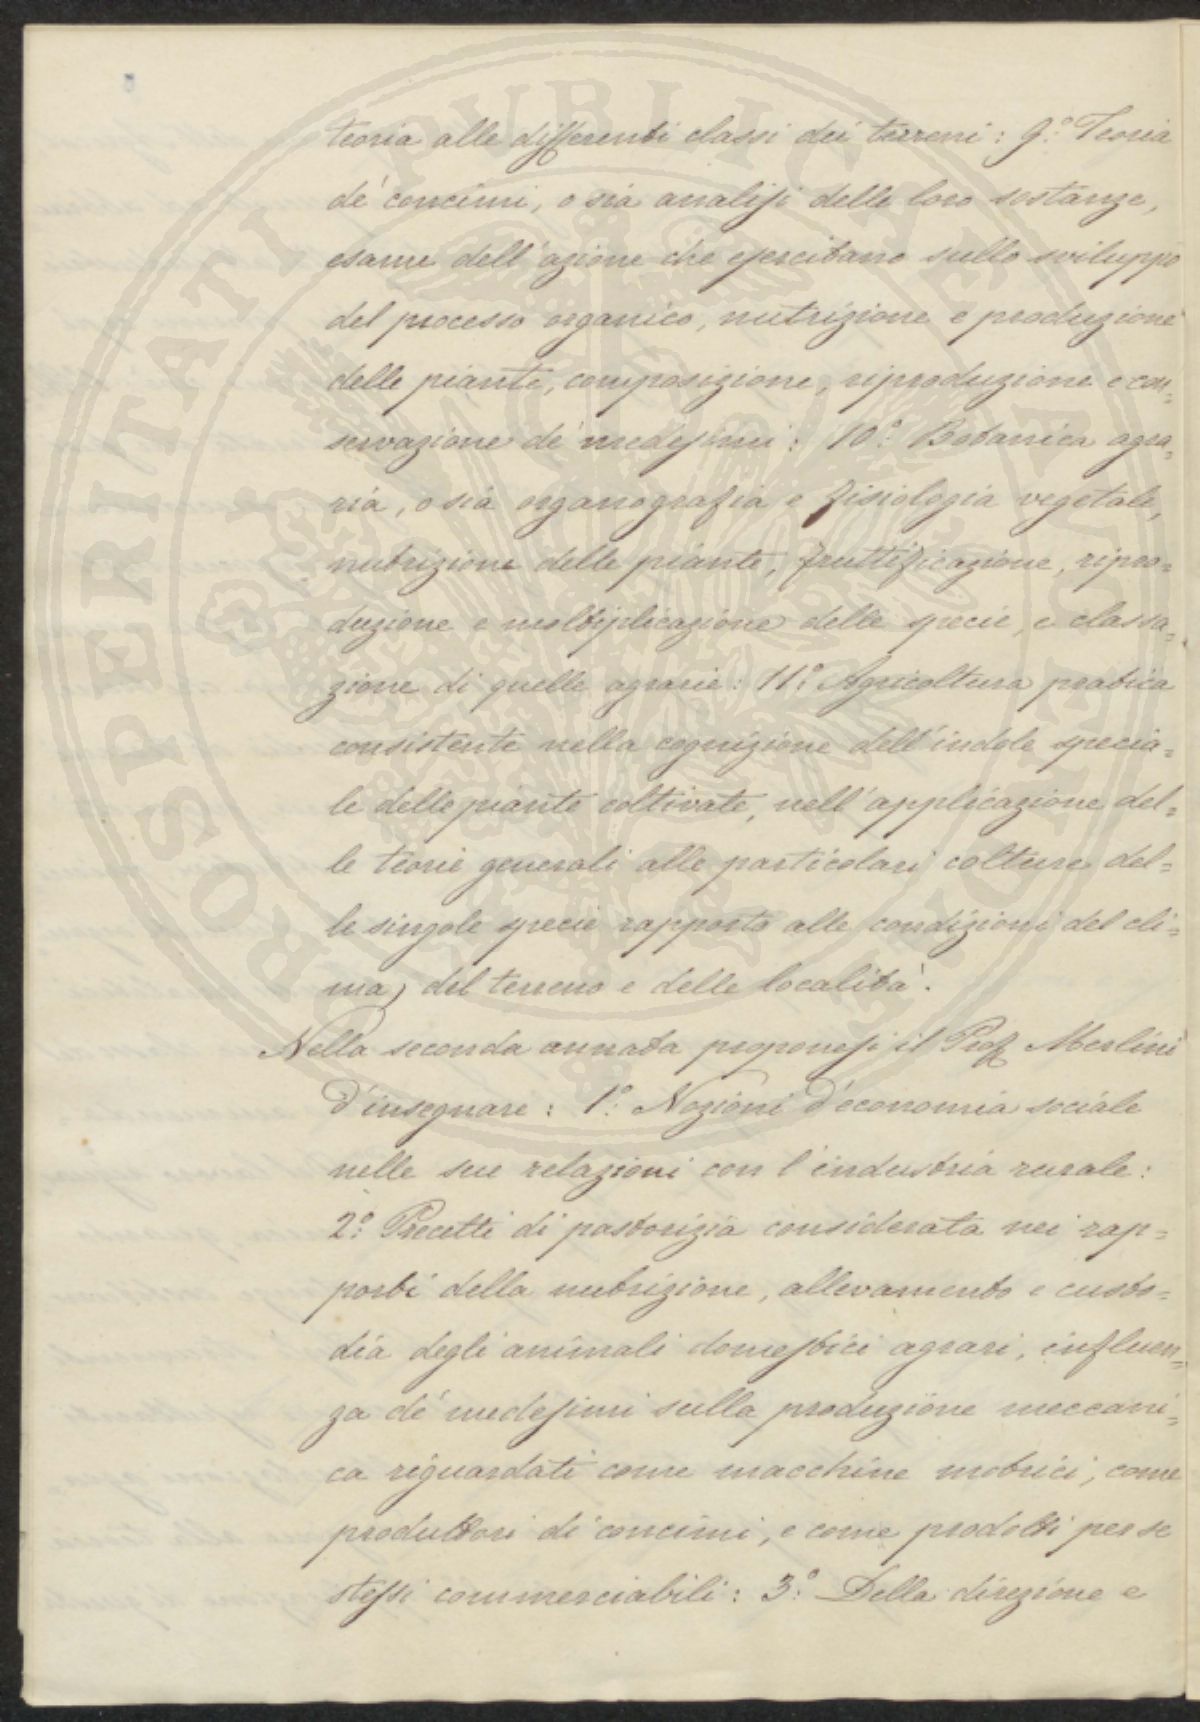 teoria alle differenti classi dei terreni: 9.° Teoria
de' concimi, o sia analisi delle loro sostanze,
esame dell'azione che esercitano sullo sviluppo
del processo organico, nutrizione e produzione
delle piante, composizione, riproduzione e con=
servazione de' medesimi: 10.° Botanica agra=
ria, o sia organografia e fisiologia vegetale,
nutrizione delle piante, fruttificazione, ripro=
duzione e moltiplicazione delle specie, e classa=
zione di quelle agrarie: 11.° Agricoltura pratica
consistente nella cognizione dell'indole specia=
le delle piante coltivate, nell'applicazione del=
le teorie generali alle particolari colture del=
le singole specie rapporto alle condizioni del cli=
ma, del terreno e delle località.
Nella seconda annata proponesi il Prof. Merlini
d'insegnare: 1.° Nozioni d'economia sociale
nelle sue relazioni con l'industria rurale:
2.° Precetti di pastorizia considerata nei rap=
porti della nutrizione, allevamento e custo=
dia degli animali domestici agrari, influen=
za de' medesimi sulla produzione meccani=
ca riguardati come macchine motrici, come
produttori di concimi, e come prodotti per se
stessi commerciabili: 3.° Della direzione e
PROSPERITATI PUBLICAE AUGENDAE